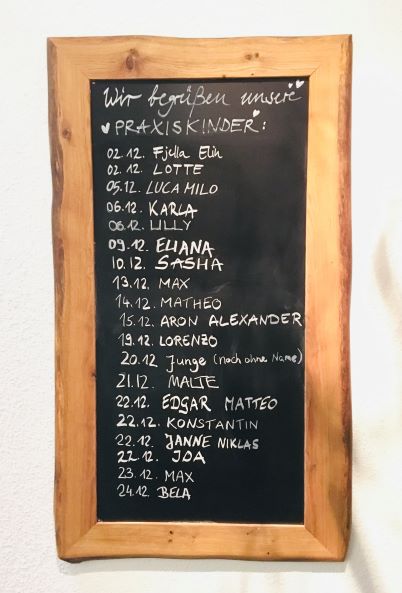 Wir begrüßen unsere
PRAXISKINDER:
02.12. Fjella Elin
02.12. LOTTE
05.12. LUCA MILO
06.12. KARLA
06.12. LILLY
09.12. ELIANA
10.12. SASHA
13.12. MAX
14.12. MATHEO
15.12. ARON ALEXANDER
19.12. LORENZO
20.12 Junge (noch ohne Name)
21.12. MALTE
22.12. EDGAR MATTEO
22.12. KONSTANTIN
22.12. JANNE NIKLAS
22.12. IDA
23.12. MAX
24.12. BELA